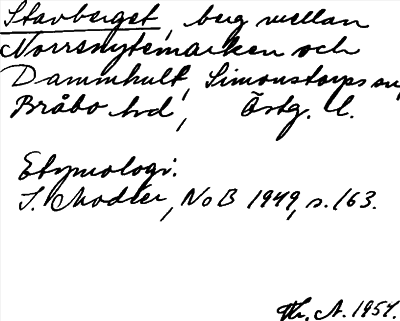 Stavberget, berg mellan
Norrsnytemarken och
Dammhult, Simonstorps sn,
Bråbo hd, Östg. l.
Etymologi.
I. Modéer, NoB 1949, s. 163.
Th. A. 1957.